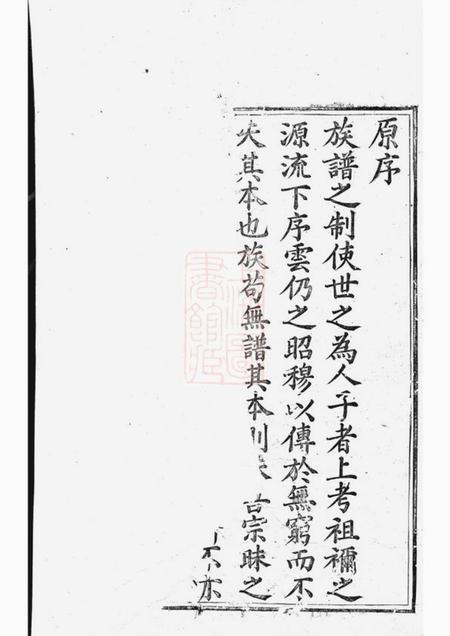 原序
族譜之制使世之為人子者上考祖禰之
源流下序雲仍之昭穆以傳於無窮而不
失其本也族苟無譜其本則失 宗昧之
不亦